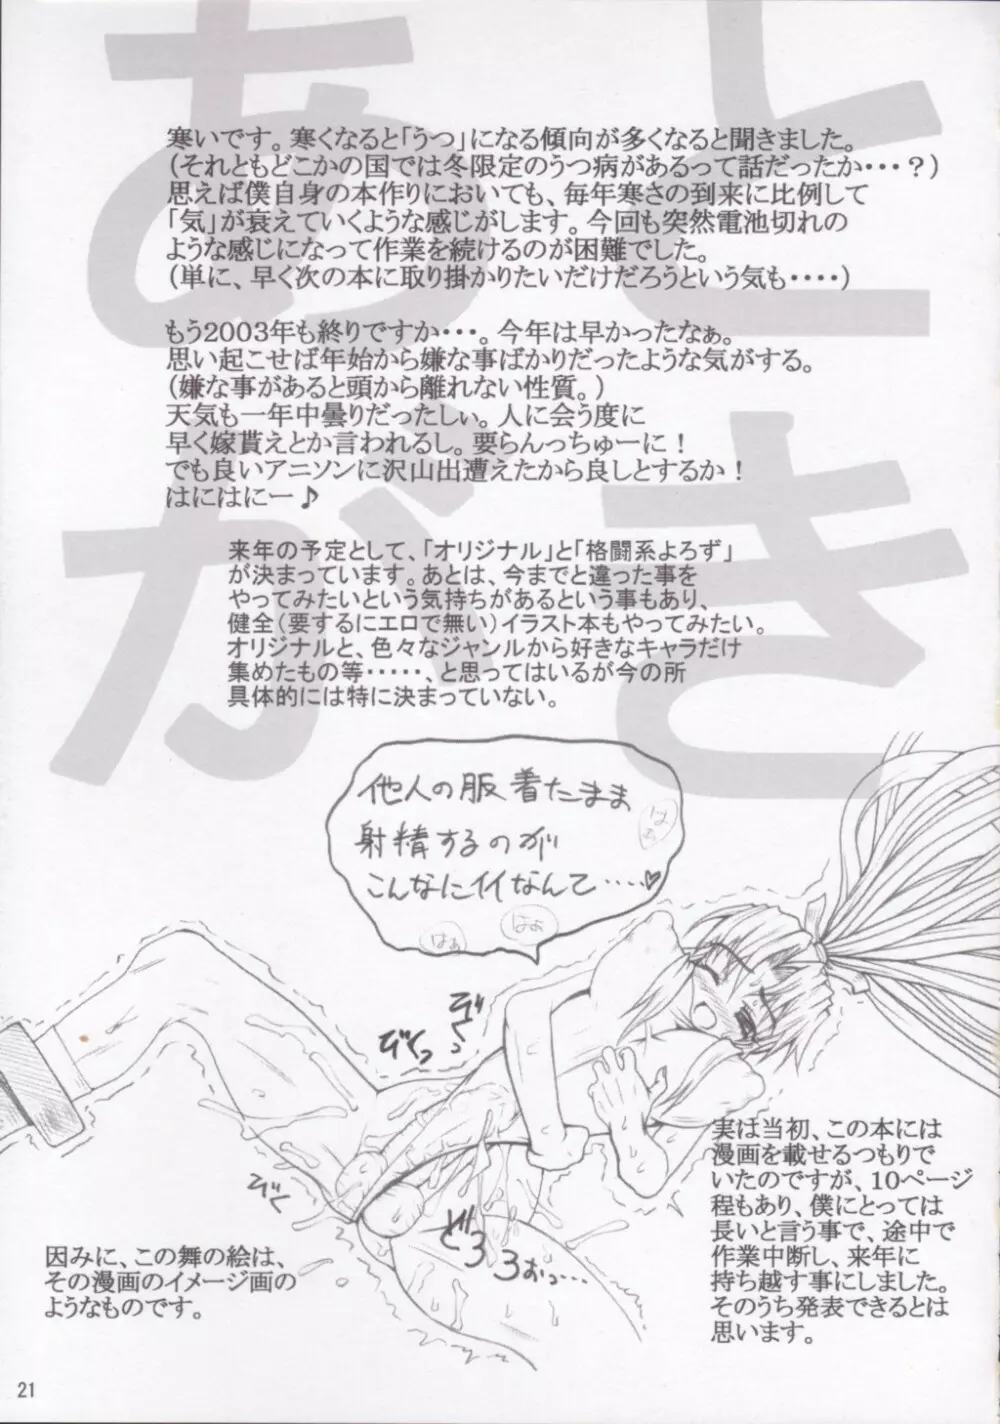 あとがき
寒いです。寒くなると「うつ」になる傾向が多くなると聞きました。
(それともどこかの国では冬限定のうつ病があるって話だったか・・・？)
思えば僕自身の本作りにおいても、毎年寒さの到来に比例して
「気」が衰えていくような感じがします。今回も突然電池切れの
ような感じになって作業を続けるのが困難でした。
(単に、早く次の本に取り掛かりたいだけだろうという気も・・・・)
もう2003年も終りですか・・・。今年は早かったなぁ。
思い起こせば年始から嫌な事ばかりだったような気がする。
(嫌な事があると頭から離れない性質。)
天気も一年中曇りだったしぃ。人に会う度に
早く嫁貰えとか言われるし。要らんっちゅーに！
でも良いアニソンに沢山出遭えたから良しとするか！
はにはにー♪
来年の予定として、「オリジナル」と「格闘系よろず」
が決まっています。あとは、今までと違った事を
やってみたいという気持ちがあるという事もあり、
健全(要するにエロで無い)イラスト本もやってみたい。
オリジナルと、色々なジャンルから好きなキャラだけ
集めたもの等・・・・・、と思ってはいるが今の所
具体的には特に決まっていない。
他人の服着たまま
射精するのが
こんなにイイなんて・・・・・♥
はぁ
はぁ
はぁ
びくっ
びくっ
びく
どろろおっ・・・
実は当初、この本には
漫画を載せるつもりで
いたのですが、10ページ
程もあり、僕にとっては
長いと言う事で、途中で
作業中断し、来年に
持ち越す事にしました。
そのうち発表できるとは
思います。
因みに、この舞の絵は、
その漫画のイメージ画の
ようなものです。
21